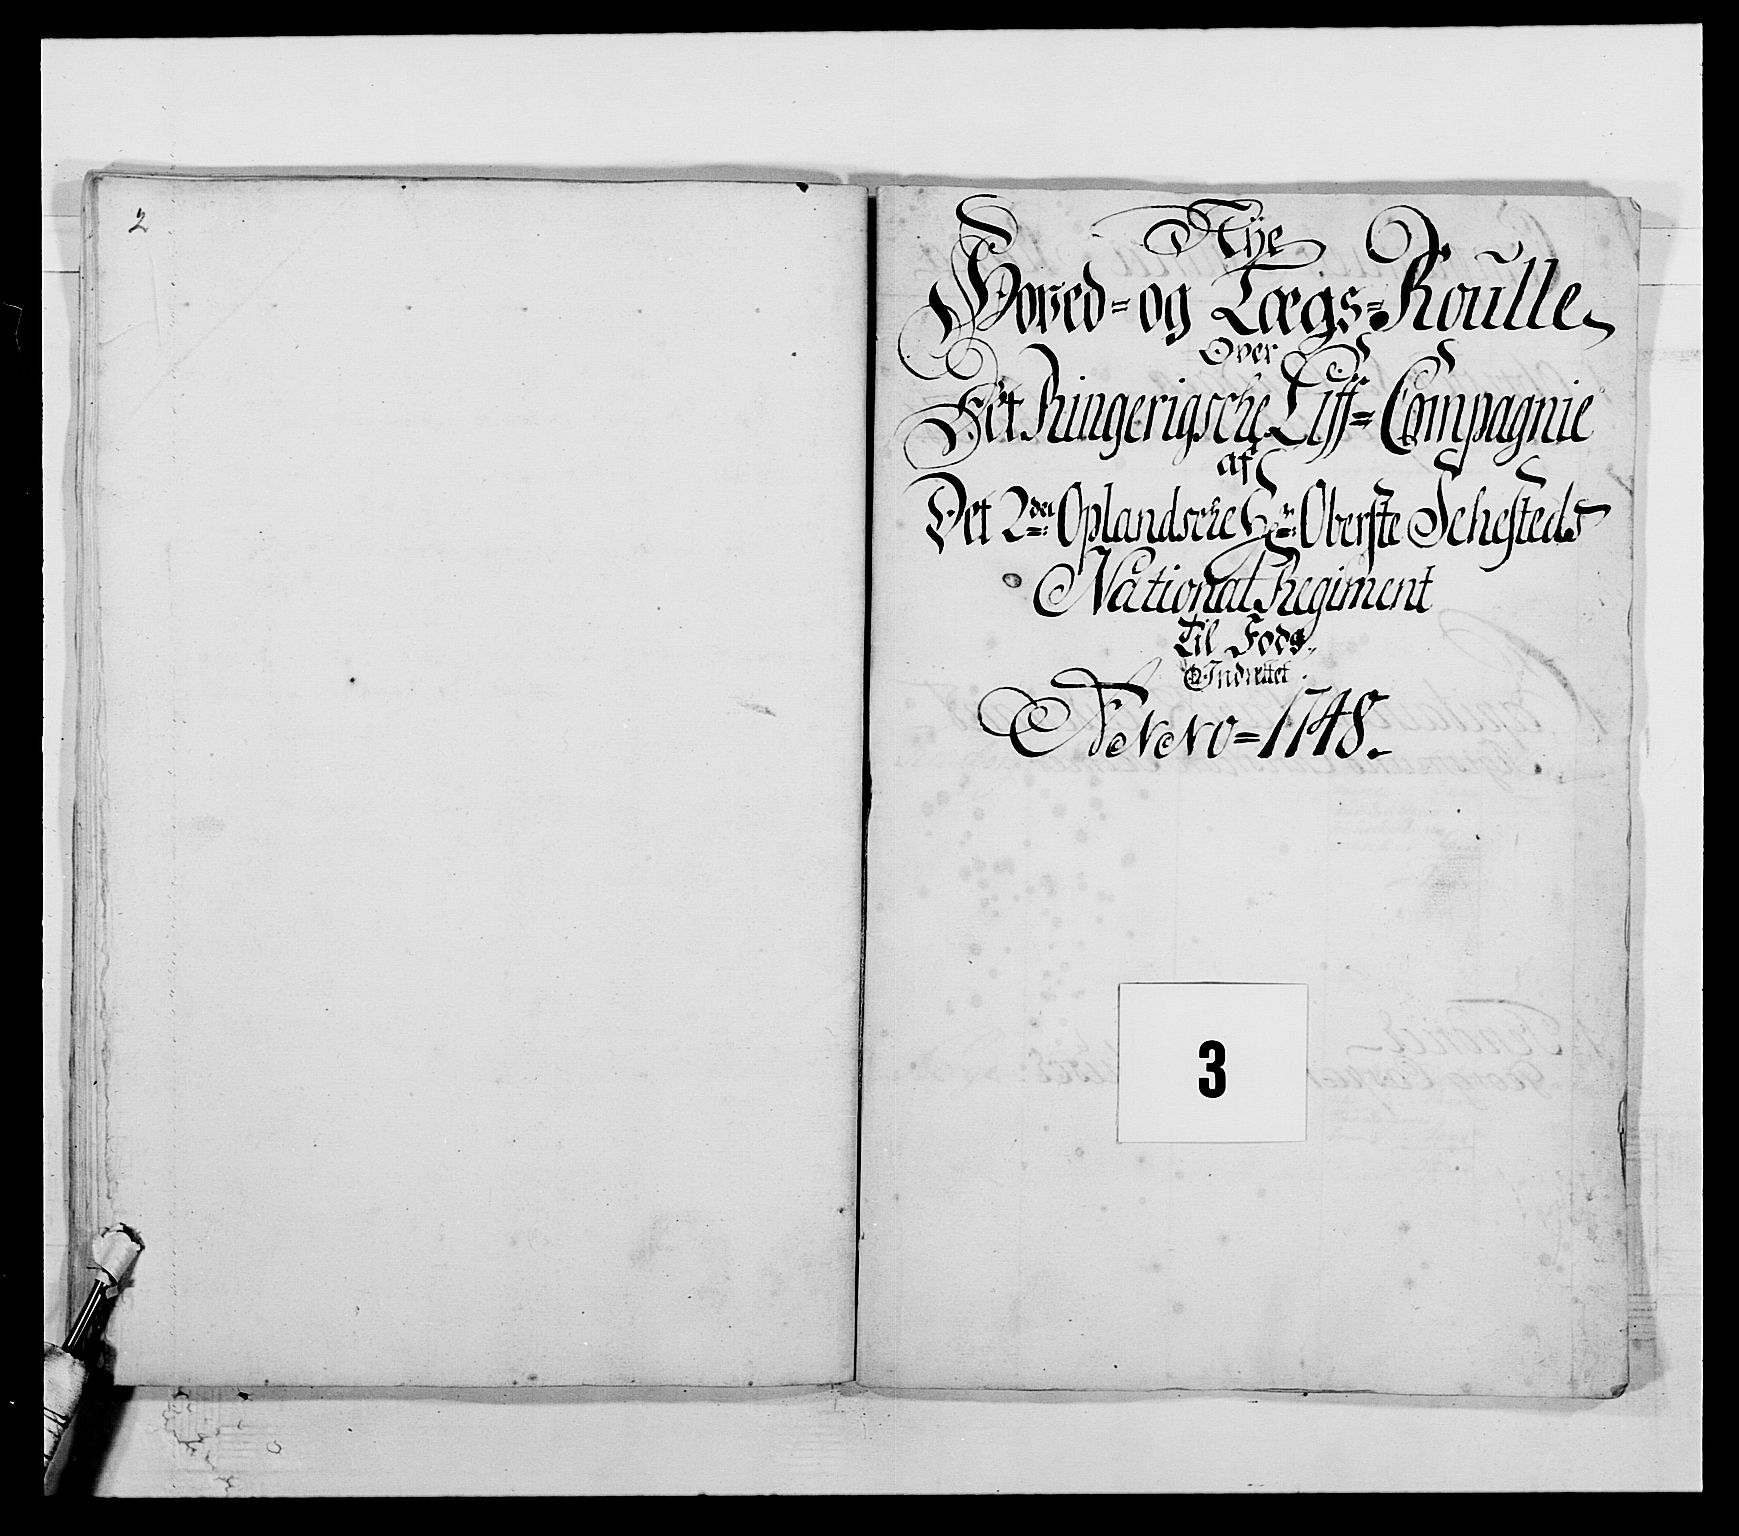 2
Nÿe
Hoved= og Lægs=Roulle
Over
Det Ringerigsche Liff=Compagnie
af
Det 2det Oplandsche Hr: Oberste Schesteds
National Regiment
Til Fods,
Indrettet.
Anno=1748.
3